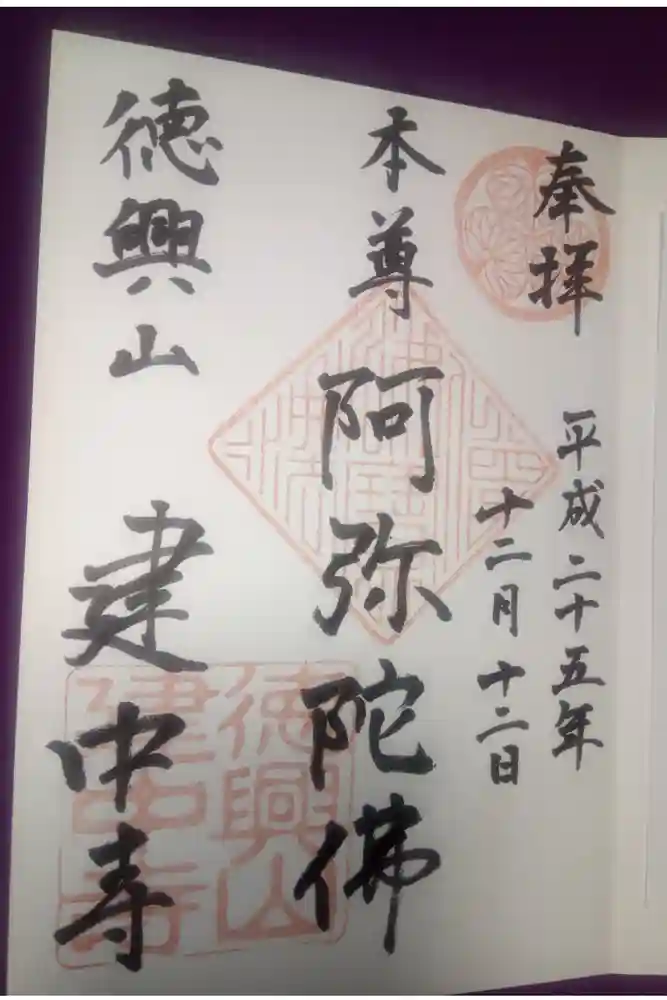 奉拝
平成二十五年
十二月十二日
本尊 阿弥陀佛
徳興山 建中寺
徳興山
建中寺